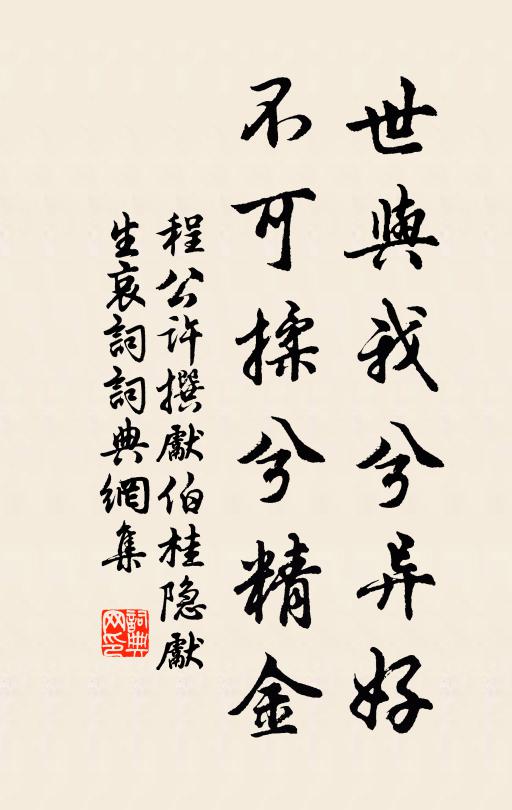 世與我兮异好
不可揉兮精金
程公许撰獻伯桂隐獻
生哀詞詞典網集
詞典
网印